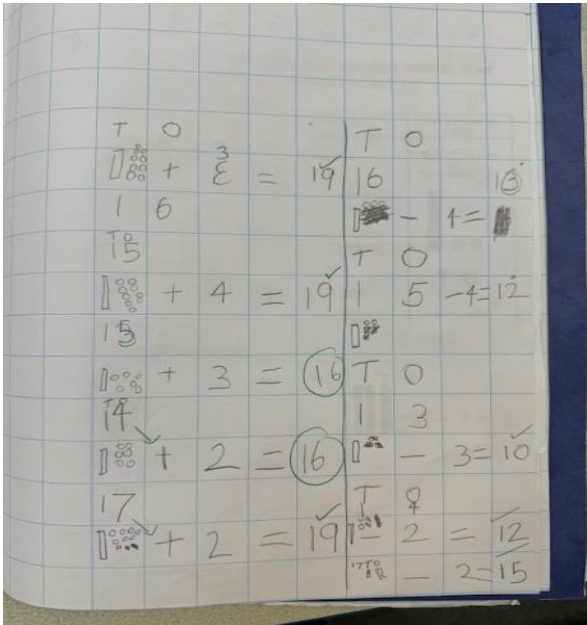 T O
+ 3 = 19
1 6
T O
15
+ 4 = 19
15
+ 3 = 16
T O
14
+ 2 = 16
17
+ 2 = 19
T O
16
- 4 =
T O
1 5 -4=12
T O
1 3
- 3=10
T
- 2 = 12
17 T O
- 2=15